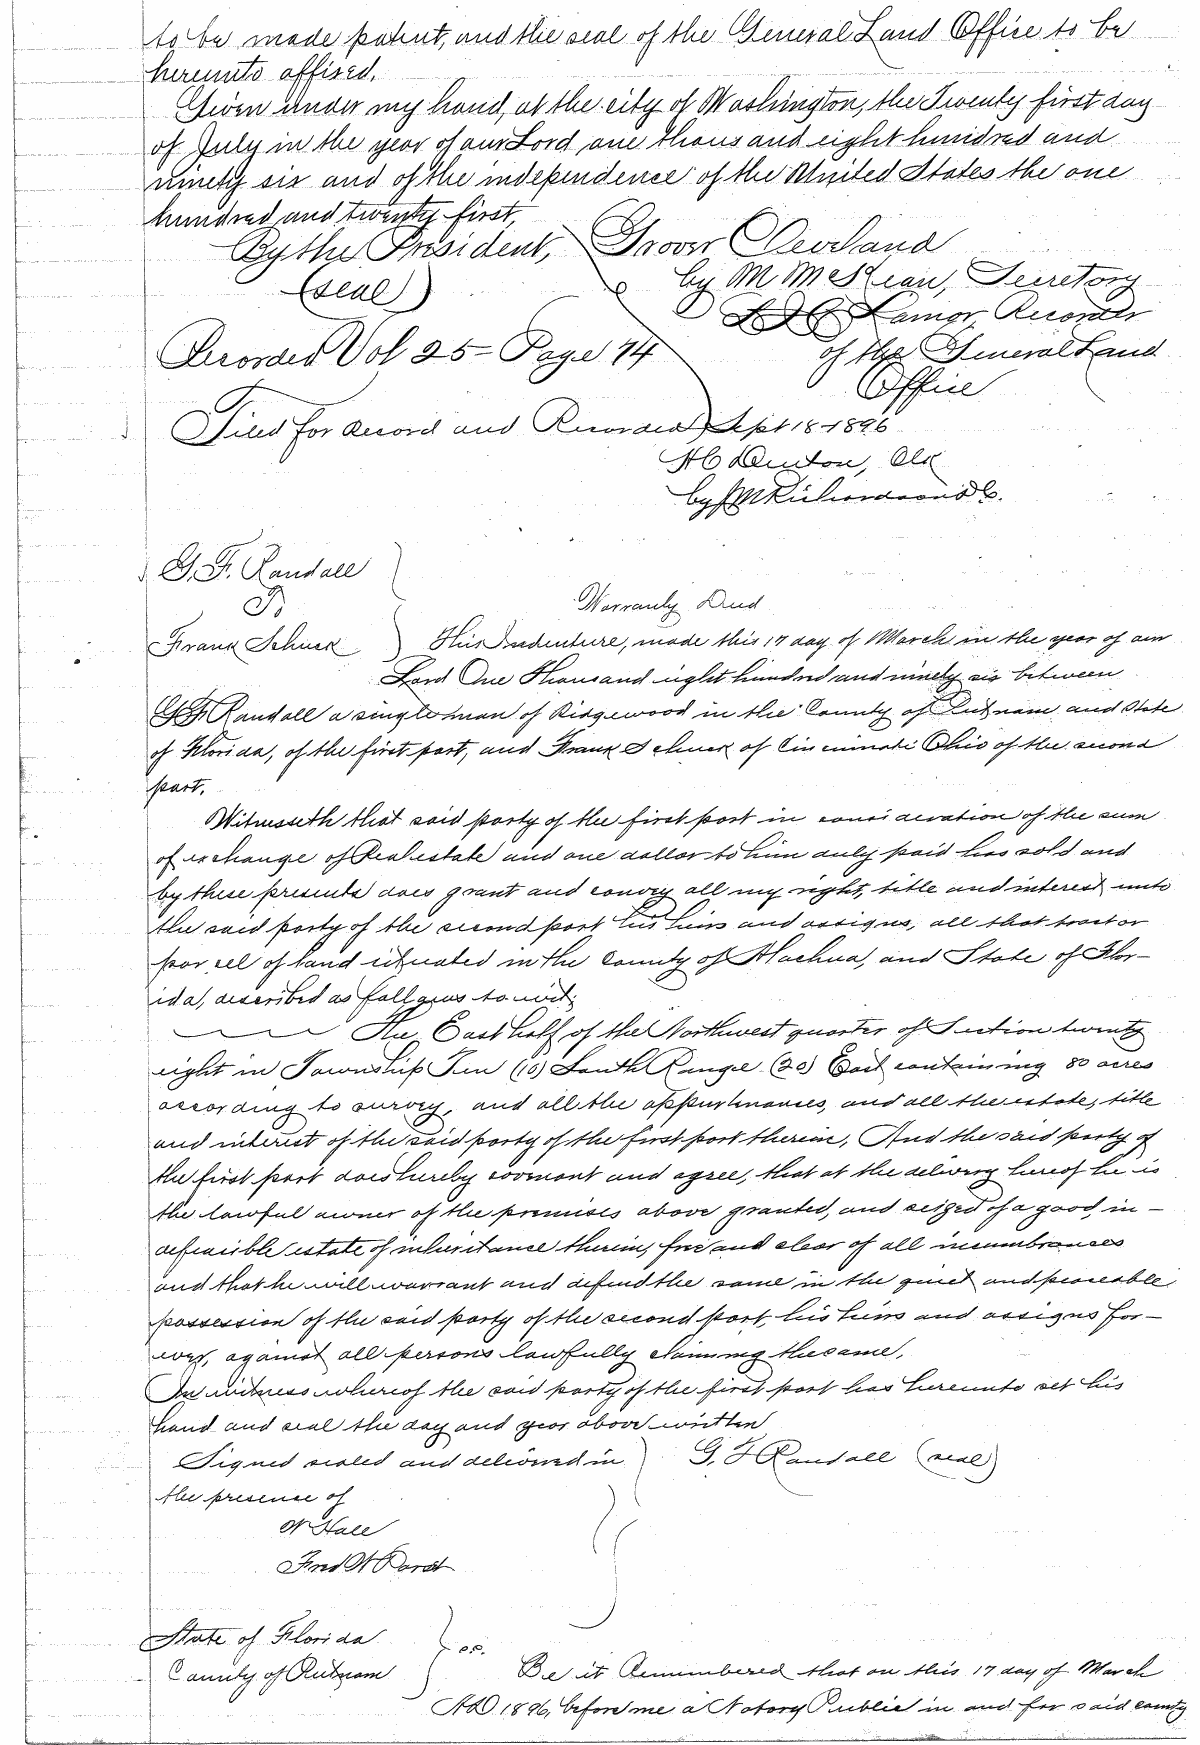 to be made patent, and the seal of the General Land Office to be
hereunto affixed.
Given under my hand, at the city of Washington, the Twenty first day
of July in the year of our Lord one thousand eight hundred and
ninety six and of the independence of the United States the one
hundred and twenty first,
By the President, Grover Cleveland
(seal) by M McKean, Secretary
L Q C Lamar, Recorder
Recorded Vol 25 - Page 74 of the General Land
Office
Filed for Record and Recorded Sept 18 1896
H C Denton, Clk
by J M Richardson D C.
G. F. Randall
To
Warranty Deed
Frank Schuck ) This Indenture, made this 17 day of March in the year of our
Lord One Thousand eight hundred and ninety six between
G F Randall a single man of Ridgewood in the County of Putnam and State
of Florida, of the first part, and Frank Schuck of Cincinnati Ohio of the second
part.
Witnesseth that said party of the first part in consideration of the sum
of exchange of Real estate and one dollar to him duly paid has sold and
by these presents does grant and convey all my right, title and interest unto
the said party of the second part his heirs and assigns, all that tract or
parcel of land situated in the County of Alachua, and State of Flor-
ida, described as follows to wit;
The East half of the Northwest quarter of Section twenty
eight in Township Ten (10) South Range (20) East containing 80 acres
according to survey, and all the appurtenances, and all the estate, title
and interest of the said party of the first part therein, And the said party of
the first part does hereby covenant and agree, that at the delivery hereof he is
the lawful owner of the premises above granted, and seized of a good, in-
defeasible estate of inheritance therein, free and clear of all incumbrances
and that he will warrant and defend the same in the quiet and peaceable
possession of the said party of the second part, his heirs and assigns for-
ever, against all persons lawfully claiming the same,
In witness whereof the said party of the first part has hereunto set his
hand and seal the day and year above written
Signed sealed and delivered in ) G. F Randall (seal)
the presence of
W Hall
State of Florida
County of Putnam } ss. Be it Remembered that on this 17 day of March
AD 1896, before me a Notary Public in and for said county